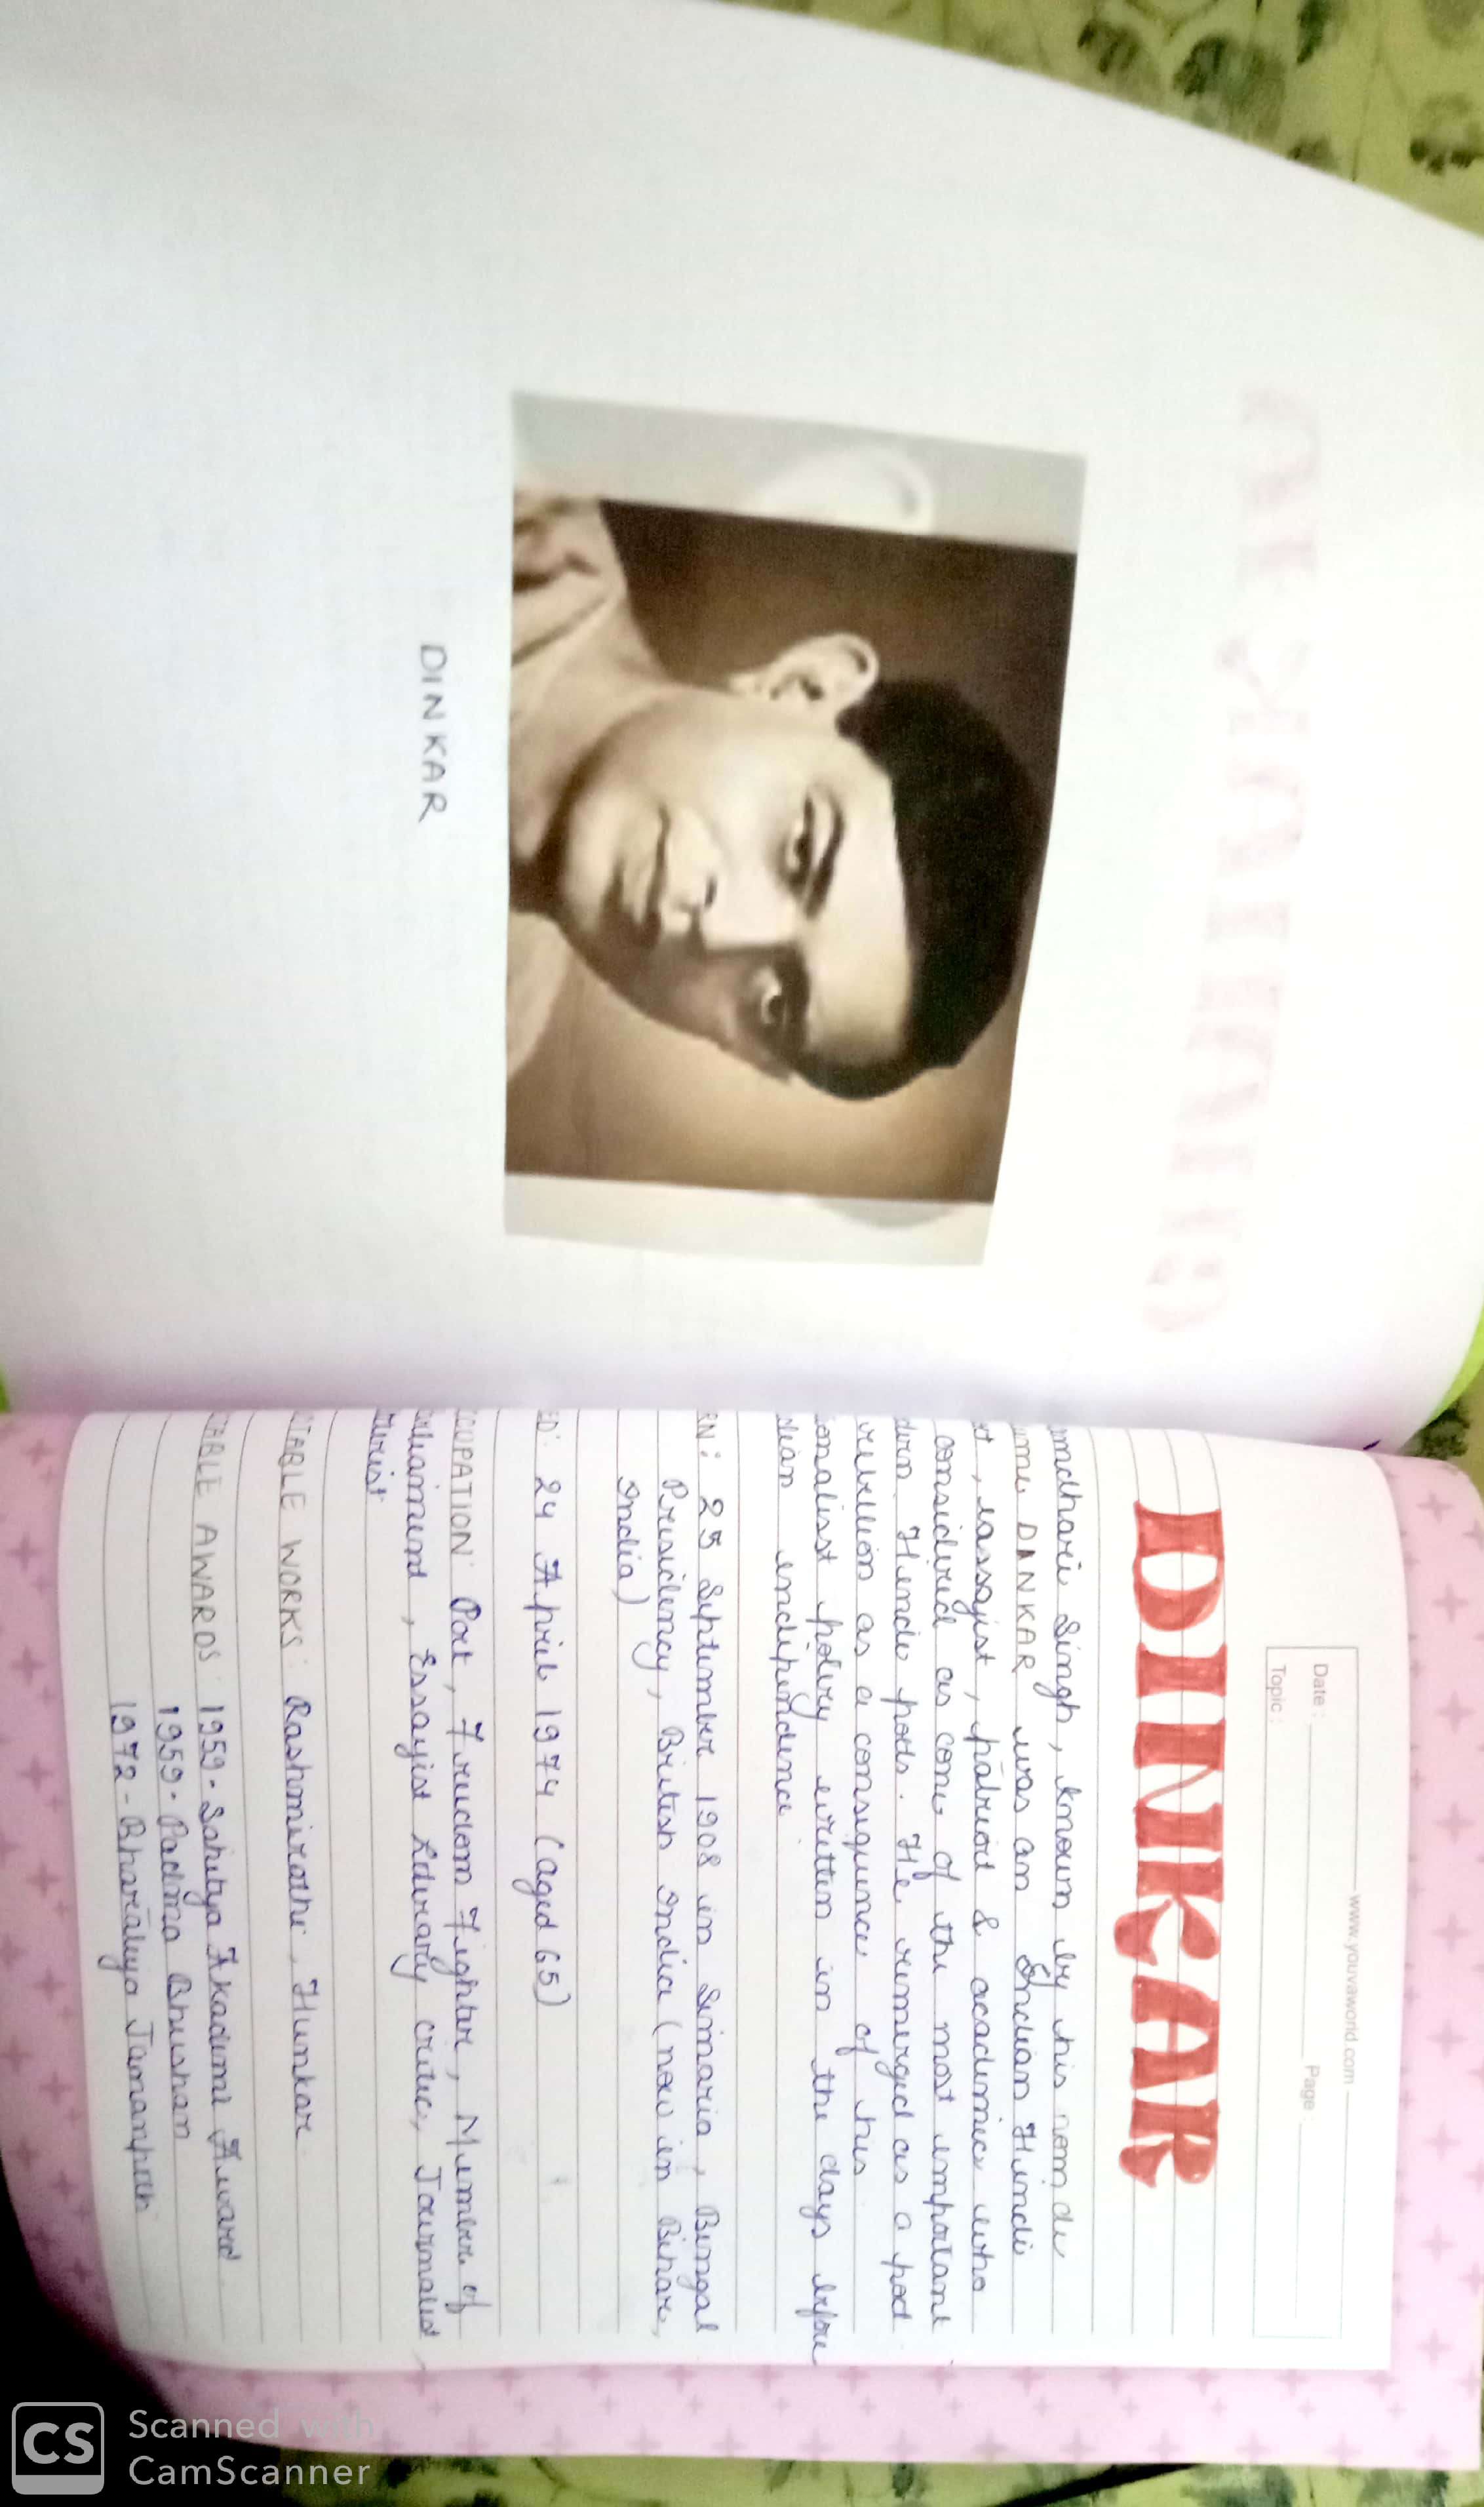 DINKAR
www.youvaworld.com
Date :
Page :
Topic :
DINKAR
mdhari Singh, known by his nom de
me DINKAR was an Indian Hindi
et, essayist, patriot & academic who
considered as one of the most important
dern Hindi poets. He remerged as a poet
rebellion as a consequence of his
onalist poetry written in the days before
dian independence
RN : 23 September 1908 in Simaria, Bengal
Presidency, British India (now in Bihar,
India)
ED : 24 April 1974 (aged 65)
CCUPATION : Poet, Freedom Fighter, Member of
arliament, Essayist Literary critic, Journalist,
turist
OTABLE WORKS : Rashmirathi, Hunkar
TABLE AWARDS : 1959 - Sahitya Akademi Award
1959 - Padma Bhushan
1972 - Bharatiya Jnanpith
CS
Scanned with
CamScanner